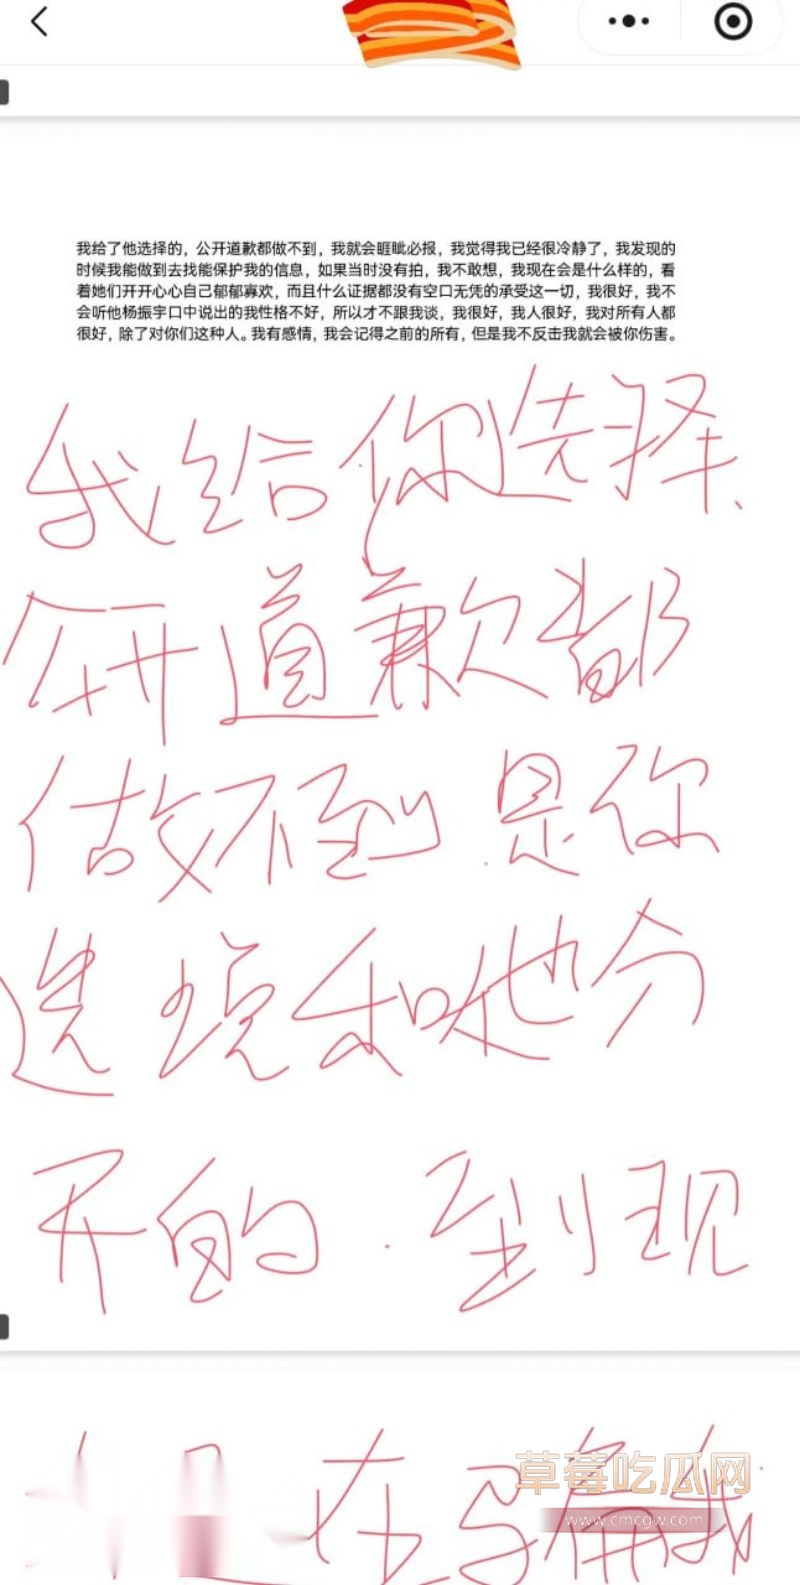 我给了他选择的，公开道歉都做不到，我就会睚眦必报，我觉得我已经很冷静了，我发现的
时候我能做到去找能保护我的信息，如果当时没有拍，我不敢想，我现在会是什么样的，看
着她们开开心心自己郁郁寡欢，而且什么证据都没有空口无凭的承受这一切，我很好，我不
会听他杨振宇口中说出的我性格不好，所以才不跟我谈，我很好，我人很好，我对所有人都
很好，除了对你们这种人。我有感情，我会记得之前的所有，但是我不反击我就会被你伤害。
我给你选择、
公开道歉都
做不到.是你
选 和他分
开的.到现
在 骗我
草莓吃瓜网
www.cmcgw.com